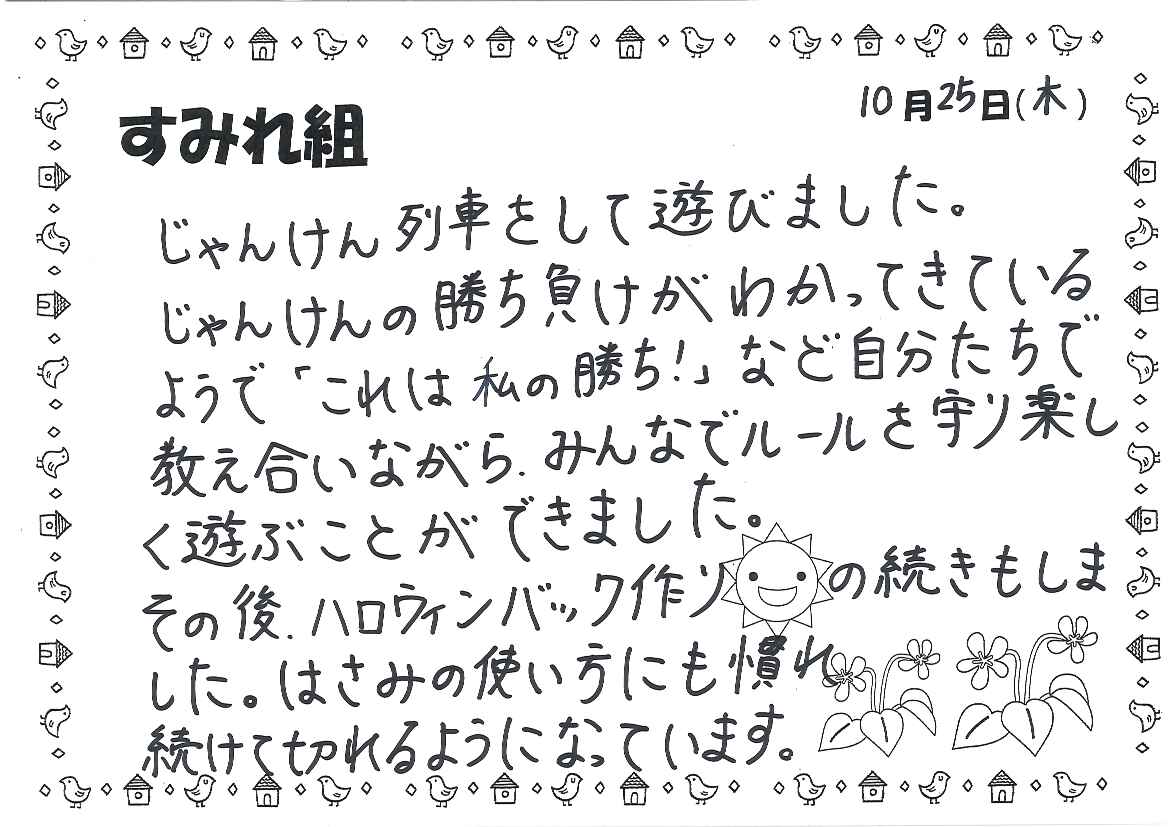 すみれ組
10月25日(木)
じゃんけん列車をして遊びました。
じゃんけんの勝ち負けがわかってきている
ようで「これは私の勝ち!」など自分たちで
教え合いながら、みんなでルールを守り楽し
く遊ぶことができました。
その後、ハロウィンバック作りの続きもしま
した。はさみの使い方にも慣れ
続けて切れるようになっています。